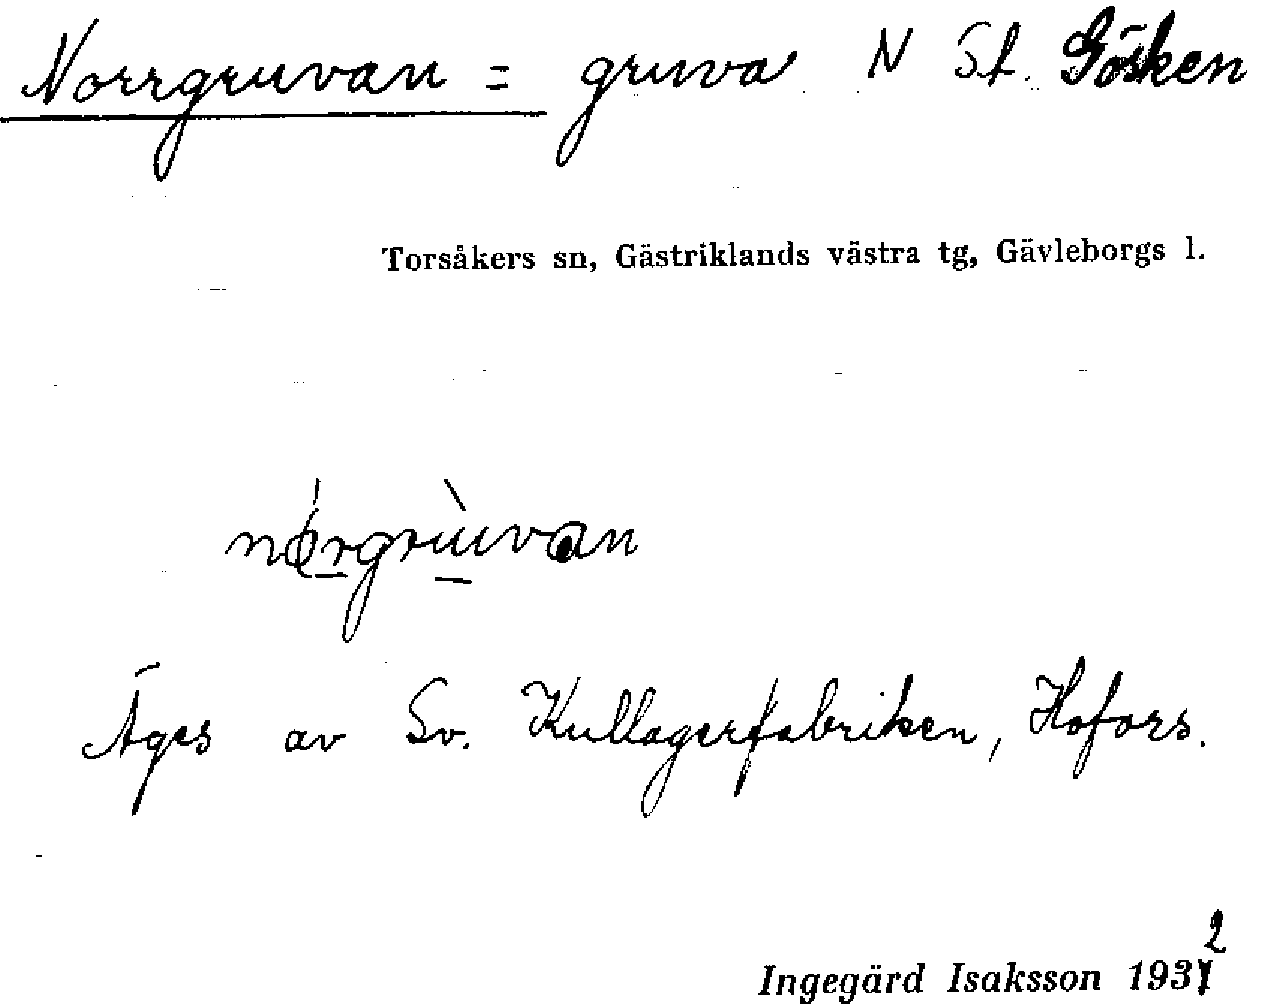 Norrgruvan = gruva N St. Gösken
Torsåkers sn, Gästriklands västra tg, Gävleborgs l.
nórgrùvan
Äges av Sv. Kullagerfabriken, Hofors.
Ingegärd Isaksson 1932